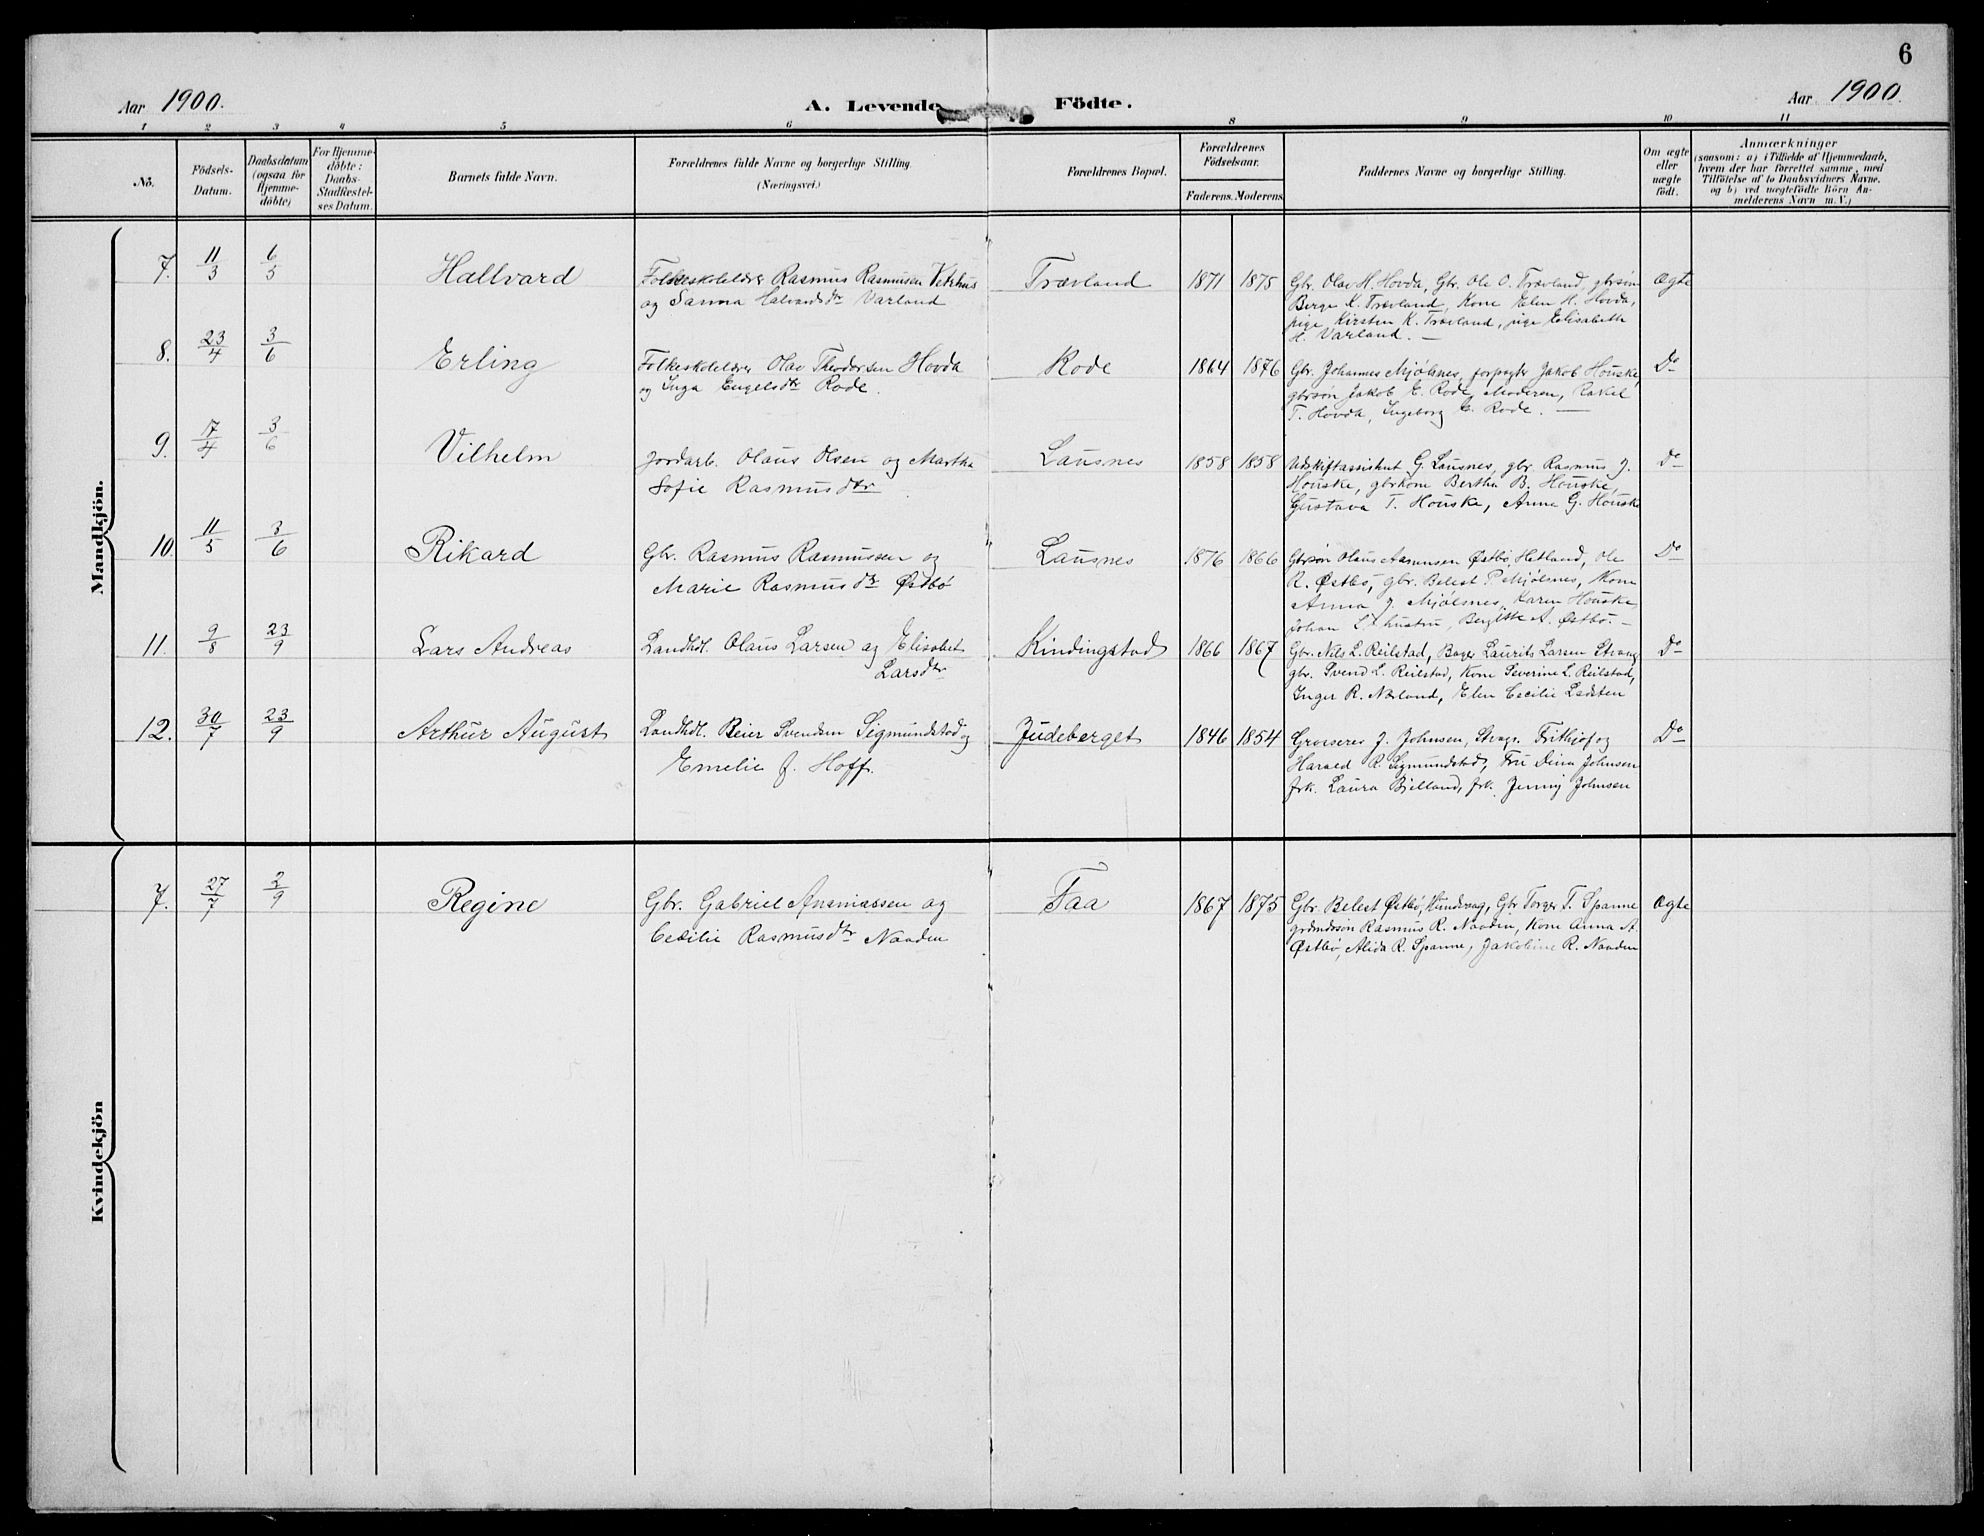 6
Aar 1900.
A. Levende Födte.
Aar 1900.
1 2 3 4 5 6 8 9 10 11
No.
Födsels-
Datum.
Daabsdatum
(ogsaa for
Hjemme-
döbte)
For Hjemme-
döbte:
Daabs-
Stadfæstel-
ses Datum.
Barnets fulde Navn.
Forældrenes fulde Navne og borgerlige Stilling.
(Næringsvei.)
Forældrenes Bopæl.
Forældrenes
Födselsaar.
Faderens. Moderens.
Faddernes Navne og borgerlige Stilling.
Om ægte
eller
uægte
födt.
Anmærkninger
(saasom: a) i Tilfælde af Hjemmedaab,
hvem der har forrettet samme, med
Tilföielse af to Daabsvidners Navne,
og b) ved uægtefödte Börn An-
melderens Navn m. V.)
Mandkjön.
7. 11/3 6/5 Hallvard
Folkeskolelærer Rasmus Rasmusen Vetrhus
og Sanna Halvardsdtr Varland
Trævland 1871 1875
Gbr. Olav H. Hovda, Gbr. Ole O. Trævland, gbrsøn
Berge K. Trævland, Kone Elen H. Hovda,
pige Kirsten K. Trævland, pige Elisabeth
H. Varland. —
Ægte
8. 23/4 3/6 Erling
Folkeskolelærer Olav Theodorsen Hovda
og Inga Engelsdtr Rode.
Rode 1864 1876
Gbr. Johannes Mjölsnes, forpagter Jakob Houske,
gbrsøn Jakob E. Rode, Moderen, Rakel
T. Hovda, Ingeborg E. Rode. —
Do
9. 17/4 3/6 Vilhelm
Jordarb. Olaus Olsen og Martha
Sofie Rasmusdtr.
Lausnes 1858 1858
Udskiftassistent G. Lausnes, gbr. Rasmus J.
Houske, gbrkone Bertha B. Houske,
Gustava T. Houske, Anna G. Houske
Do
10. 11/5 3/6 Rikard
Gbr. Rasmus Rasmussen og
Marie Rasmusdtr Østbö
Lausnes 1876 1866
Gbrsøn Olaus Aamensen Østbö Hetland, Ole
R. Østbö, gbr. Belest P. Mjölsnes, Kone
Anna J. Mjölsnes, Karen Houske,
Johan L. hustru, Bergitte A. Østbö. —
Do
11. 9/8 23/9 Lars Andreas
Landhdl. Olaus Larsen og Elisabet
Larsdtr
Kindingstad 1866 1867
Gbr. Nils L. Reilstad, Bager Laurits Larsen Stvang
gbr. Svend L. Reilstad, Kone Severine L. Reilstad,
Inger R. Næland, Elen Cecilie Ladsten
Do
12. 30/7 23/9 Arthur August
Landhdl. Beier Svendsen Sigmundstad og
Emelie J. Hoff.
Judeberget 1846 1854
Grosserer J. Johnsen, Stvgr. Frithjof og
Harald R. Sigmundstad, Fru Dina Johnsen
frk. Laura Bjelland, frk. Jenny Johnsen
Do
Kvindekjön
7. 27/7 2/9 Regine
Gbr. Gabriel Ananiassen og
Cecilie Rasmusdtr Naaden
Faa 1867 1875
Gbr. Belest Østbö, Hundvaag, Gbr Torger T. Spanne
grdmdssön Rasmus R. Naaden, Kone Anna A.
Østbö, Alida R. Spanne, Jakobine R. Naaden
Ægte